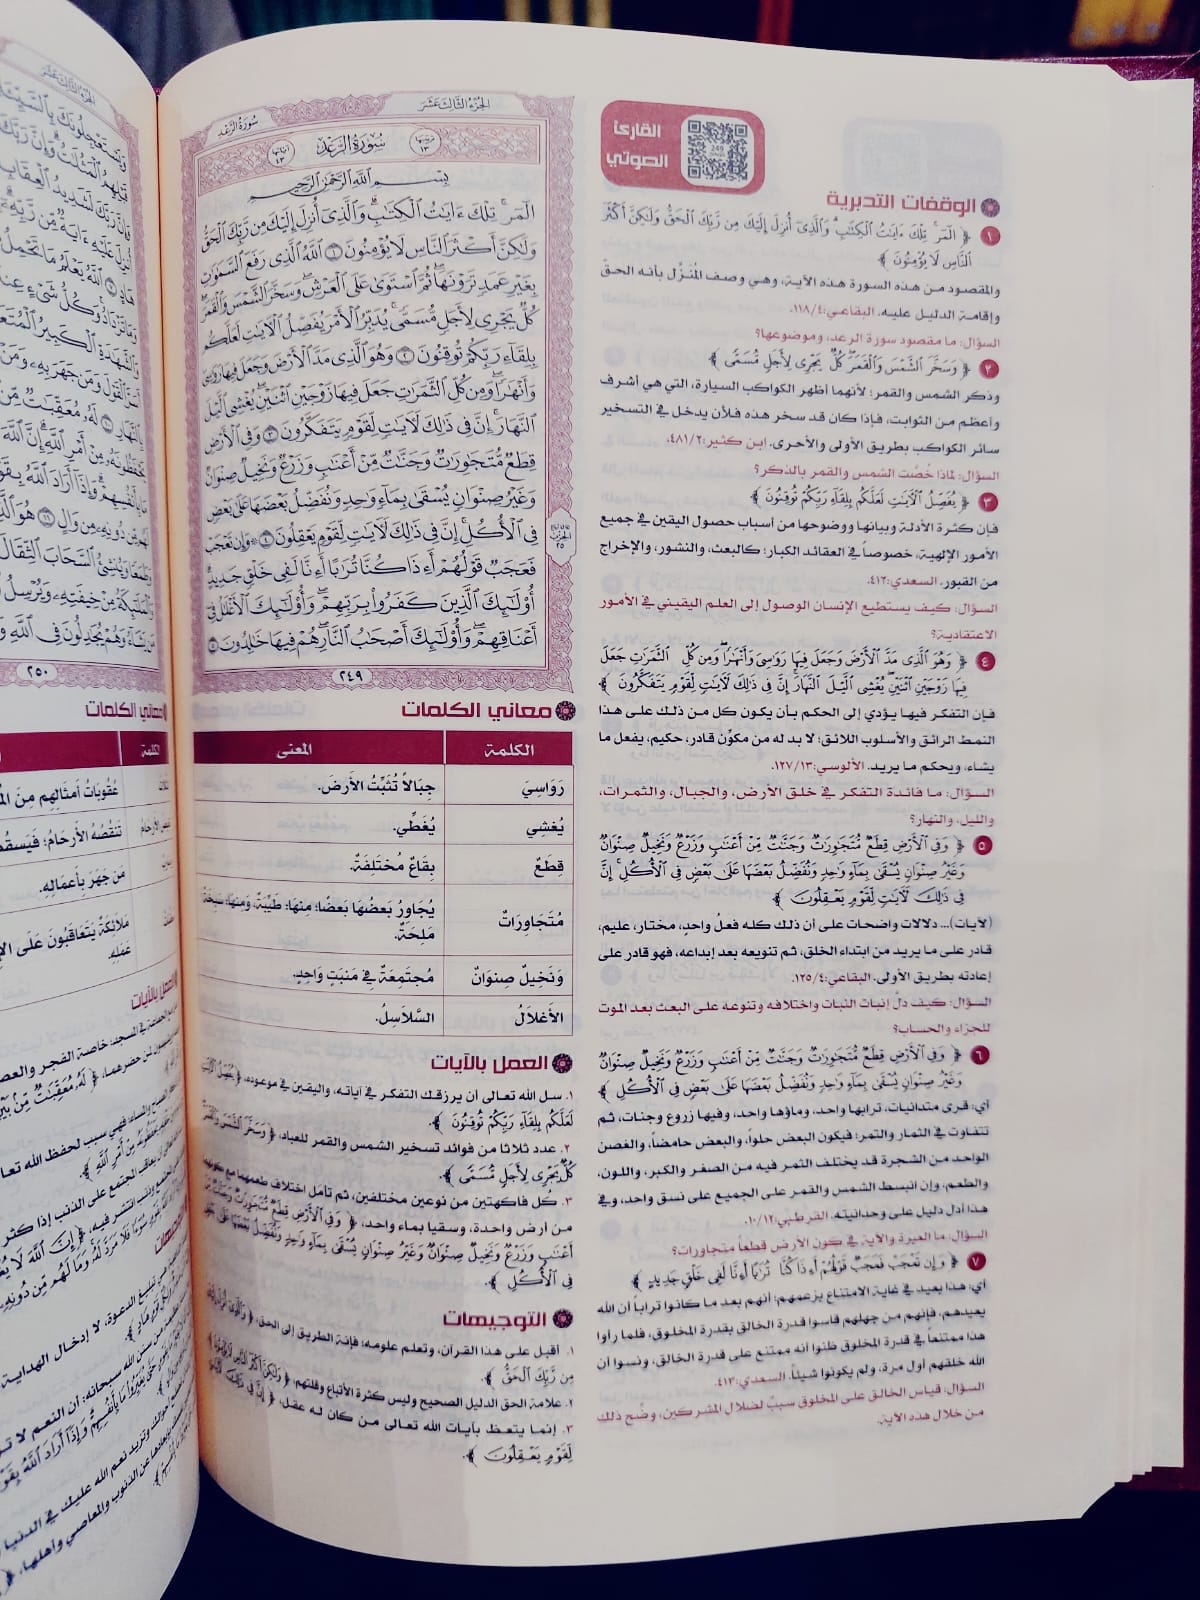 الجزء الثالث عشر
سورة الرعد
ترتيبها ١٣
سُورَةُ الرَّعْدِ
آياتها ٤٣
بِسْمِ اللَّهِ الرَّحْمَٰنِ الرَّحِيمِ
الٓمٓر ۚ تِلْكَ ءَايَٰتُ الْكِتَٰبِ ۗ وَالَّذِىٓ أُنزِلَ إِلَيْكَ مِن رَّبِّكَ الْحَقُّ
وَلَٰكِنَّ أَكْثَرَ النَّاسِ لَا يُؤْمِنُونَ ١ اللَّهُ الَّذِى رَفَعَ السَّمَٰوَٰتِ
بِغَيْرِ عَمَدٍ تَرَوْنَهَا ۖ ثُمَّ اسْتَوَىٰ عَلَى الْعَرْشِ ۖ وَسَخَّرَ الشَّمْسَ وَالْقَمَرَ ۖ
كُلٌّ يَجْرِى لِأَجَلٍ مُّسَمًّى ۚ يُدَبِّرُ الْأَمْرَ يُفَصِّلُ الْءَايَٰتِ لَعَلَّكُم
بِلِقَآءِ رَبِّكُمْ تُوقِنُونَ ٢ وَهُوَ الَّذِى مَدَّ الْأَرْضَ وَجَعَلَ فِيهَا رَوَٰسِىَ
وَأَنْهَٰرًا ۖ وَمِن كُلِّ الثَّمَرَٰتِ جَعَلَ فِيهَا زَوْجَيْنِ اثْنَيْنِ ۖ يُغْشِى الَّيْلَ
النَّهَارَ ۚ إِنَّ فِى ذَٰلِكَ لَءَايَٰتٍ لِّقَوْمٍ يَتَفَكَّرُونَ ٣ وَفِى الْأَرْضِ
قِطَعٌ مُّتَجَٰوِرَٰتٌ وَجَنَّٰتٌ مِّنْ أَعْنَٰبٍ وَزَرْعٌ وَنَخِيلٌ صِنْوَانٌ
وَغَيْرُ صِنْوَانٍ يُسْقَىٰ بِمَآءٍ وَٰحِدٍ وَنُفَضِّلُ بَعْضَهَا عَلَىٰ بَعْضٍ
فِى الْأُكُلِ ۚ إِنَّ فِى ذَٰلِكَ لَءَايَٰتٍ لِّقَوْمٍ يَعْقِلُونَ ٤ ۞ وَإِن تَعْجَبْ
فَعَجَبٌ قَوْلُهُمْ أَءِذَا كُنَّا تُرَٰبًا أَءِنَّا لَفِى خَلْقٍ جَدِيدٍ ۗ
أُو۟لَٰٓئِكَ الَّذِينَ كَفَرُوا۟ بِرَبِّهِمْ ۖ وَأُو۟لَٰٓئِكَ الْأَغْلَٰلُ فِىٓ
أَعْنَاقِهِمْ ۖ وَأُو۟لَٰٓئِكَ أَصْحَٰبُ النَّارِ ۖ هُمْ فِيهَا خَٰلِدُونَ ٥
الحزب ٢٥
٢٤٩
معاني الكلمات
الكلمة المعنى
رَوَاسِيَ جِبَالاً تُثَبِّتُ الأَرضَ.
يُغشِي يُغَطِّي.
قِطَعٌ بِقَاعٌ مُختَلِفَةٌ.
مُتَجَاوِرَاتٌ يُجَاوِرُ بَعضُهَا بَعضًا؛ مِنهَا: طَيِّبَةٌ، وَمِنهَا: سَبِخَةٌ
مَلِحَةٌ.
وَنَخِيلٌ صِنوَانٌ مُجتَمِعَةٌ فِي مَنبَتٍ وَاحِدٍ.
الأَغلَالُ السَّلاَسِلُ.
العمل بالآيات
١. سل الله تعالى أن يرزقك التفكر في آياته، واليقين في موعوده، ﴿ يُفَصِّلُ الْءَايَٰتِ
لَعَلَّكُم بِلِقَآءِ رَبِّكُمْ تُوقِنُونَ ﴾.
٢. عدد ثلاثا من فوائد تسخير الشمس والقمر للعباد، ﴿ وَسَخَّرَ الشَّمْسَ وَالْقَمَرَ
كُلٌّ يَجْرِى لِأَجَلٍ مُّسَمًّى ﴾.
٣. كل فاكهتين من نوعين مختلفين، ثم تأمل اختلاف طعمهما مع كونهما
من أرض واحدة، وسقيا بماء واحد، ﴿ وَفِى الْأَرْضِ قِطَعٌ مُّتَجَٰوِرَٰتٌ وَجَنَّٰتٌ مِّنْ
أَعْنَٰبٍ وَزَرْعٌ وَنَخِيلٌ صِنْوَانٌ وَغَيْرُ صِنْوَانٍ يُسْقَىٰ بِمَآءٍ وَٰحِدٍ وَنُفَضِّلُ بَعْضَهَا عَلَىٰ بَعْضٍ
فِى الْأُكُلِ ﴾.
التوجيهات
١. أقبل على هذا القرآن، وتعلم علومه؛ فإنه الطريق إلى الحق، ﴿ وَالَّذِىٓ أُنزِلَ إِلَيْكَ
مِن رَّبِّكَ الْحَقُّ ﴾.
٢. علامة الحق الدليل الصحيح وليس كثرة الأتباع وقلتهم، ﴿ وَلَٰكِنَّ أَكْثَرَ النَّاسِ لَا يُؤْمِنُونَ ﴾
٣. إنما يتعظ بآيات الله تعالى من كان له عقل، ﴿ إِنَّ فِى ذَٰلِكَ لَءَايَٰتٍ
لِّقَوْمٍ يَعْقِلُونَ ﴾.
القارئ
الصوتي
249
الوقفات التدبرية
١ ﴿ الٓمٓر ۚ تِلْكَ ءَايَٰتُ الْكِتَٰبِ ۗ وَالَّذِىٓ أُنزِلَ إِلَيْكَ مِن رَّبِّكَ الْحَقُّ وَلَٰكِنَّ أَكْثَرَ
النَّاسِ لَا يُؤْمِنُونَ ﴾
والمقصود من هذه السورة هذه الآية، وهي وصف المُنزَّل بأنه الحق
وإقامة الدليل عليه. البقاعي:١١٨/٤.
السؤال: ما مقصود سورة الرعد، وموضوعها؟
٢ ﴿ وَسَخَّرَ الشَّمْسَ وَالْقَمَرَ ۖ كُلٌّ يَجْرِى لِأَجَلٍ مُّسَمًّى ﴾
وذكر الشمس والقمر؛ لأنهما أظهر الكواكب السيارة، التي هي أشرف
وأعظم من الثوابت، فإذا كان قد سخر هذه فلأن يدخل في التسخير
سائر الكواكب بطريق الأولى والأحرى. ابن كثير:٤٨١/٢.
السؤال: لماذا خُصَّت الشمس والقمر بالذكر؟
٣ ﴿ يُفَصِّلُ الْءَايَٰتِ لَعَلَّكُم بِلِقَآءِ رَبِّكُمْ تُوقِنُونَ ﴾
فإن كثرة الأدلة وبيانها ووضوحها من أسباب حصول اليقين في جميع
الأمور الإلهية، خصوصاً في العقائد الكبار؛ كالبعث، والنشور، والإخراج
من القبور. السعدي:٤١٢.
السؤال: كيف يستطيع الإنسان الوصول إلى العلم اليقيني في الأمور
الاعتقادية؟
٤ ﴿ وَهُوَ الَّذِى مَدَّ الْأَرْضَ وَجَعَلَ فِيهَا رَوَٰسِىَ وَأَنْهَٰرًا ۖ وَمِن كُلِّ الثَّمَرَٰتِ جَعَلَ
فِيهَا زَوْجَيْنِ اثْنَيْنِ ۖ يُغْشِى الَّيْلَ النَّهَارَ ۚ إِنَّ فِى ذَٰلِكَ لَءَايَٰتٍ لِّقَوْمٍ يَتَفَكَّرُونَ ﴾
فإن التفكر فيها يؤدي إلى الحكم بأن يكون كل من ذلك على هذا
النمط الرائق والأسلوب اللائق؛ لا بد له من مكوِّن قادر، حكيم، يفعل ما
يشاء، ويحكم ما يريد. الألوسي:١٢٧/١٣.
السؤال: ما فائدة التفكر في خلق الأرض، والجبال، والثمرات،
والليل، والنهار؟
٥ ﴿ وَفِى الْأَرْضِ قِطَعٌ مُّتَجَٰوِرَٰتٌ وَجَنَّٰتٌ مِّنْ أَعْنَٰبٍ وَزَرْعٌ وَنَخِيلٌ صِنْوَانٌ
وَغَيْرُ صِنْوَانٍ يُسْقَىٰ بِمَآءٍ وَٰحِدٍ وَنُفَضِّلُ بَعْضَهَا عَلَىٰ بَعْضٍ فِى الْأُكُلِ ۚ إِنَّ
فِى ذَٰلِكَ لَءَايَٰتٍ لِّقَوْمٍ يَعْقِلُونَ ﴾
(لآيات)... دلالات واضحات على أن ذلك كله فعلُ واحد، مختار، عليم،
قادر على ما يريد من ابتداء الخلق، ثم تنويعه بعد إبداعه، فهو قادر على
إعادته بطريق الأولى. البقاعي:١٢٥/٤.
السؤال: كيف دلَّ إنبات النبات واختلافه وتنوعه على البعث بعد الموت
للجزاء والحساب؟
٦ ﴿ وَفِى الْأَرْضِ قِطَعٌ مُّتَجَٰوِرَٰتٌ وَجَنَّٰتٌ مِّنْ أَعْنَٰبٍ وَزَرْعٌ وَنَخِيلٌ صِنْوَانٌ
وَغَيْرُ صِنْوَانٍ يُسْقَىٰ بِمَآءٍ وَٰحِدٍ وَنُفَضِّلُ بَعْضَهَا عَلَىٰ بَعْضٍ فِى الْأُكُلِ ﴾
أي: قرى متدانيات، ترابها واحد، وماؤها واحد، وفيها زروع وجنات، ثم
تتفاوت في الثمار والتمر؛ فيكون البعض حلواً، والبعض حامضاً، والغصن
الواحد من الشجرة قد يختلف الثمر فيه من الصغر والكبر، واللون،
والطعم، وإن انبسط الشمس والقمر على الجميع على نسق واحد، وفي
هذا أدل دليل على وحدانيته. القرطبي:١٠/١٢.
السؤال: ما العبرة والآية في كون الأرض قطعاً متجاورات؟
٧ ﴿ وَإِن تَعْجَبْ فَعَجَبٌ قَوْلُهُمْ أَءِذَا كُنَّا تُرَٰبًا أَءِنَّا لَفِى خَلْقٍ جَدِيدٍ ﴾
أي: هذا بعيد في غاية الامتناع بزعمهم؛ أنهم بعد ما كانوا تراباً أن الله
يعيدهم، فإنهم من جهلهم قاسوا قدرة الخالق بقدرة المخلوق، فلما رأوا
هذا ممتنعاً في قدرة المخلوق ظنوا أنه ممتنع على قدرة الخالق، ونسوا أن
الله خلقهم أول مرة، ولم يكونوا شيئاً. السعدي:٤١٣.
السؤال: قياس الخالق على المخلوق سببٌ لضلال المشركين، وضّح ذلك
من خلال هذه الآية.
الجزء الثالث عشر
٢٥٠
معاني الكلمات
الكلمة
عُقُوبَاتُ أَمثَالِهِم مِنَ
تَنقُصُهُ الأَرحَامُ؛
مَن جَهَرَ بِأَعمَالِهِ.
مَلاَئِكَةٌ يَتَعَاقَبُونَ عَلَى
العمل بالآيات